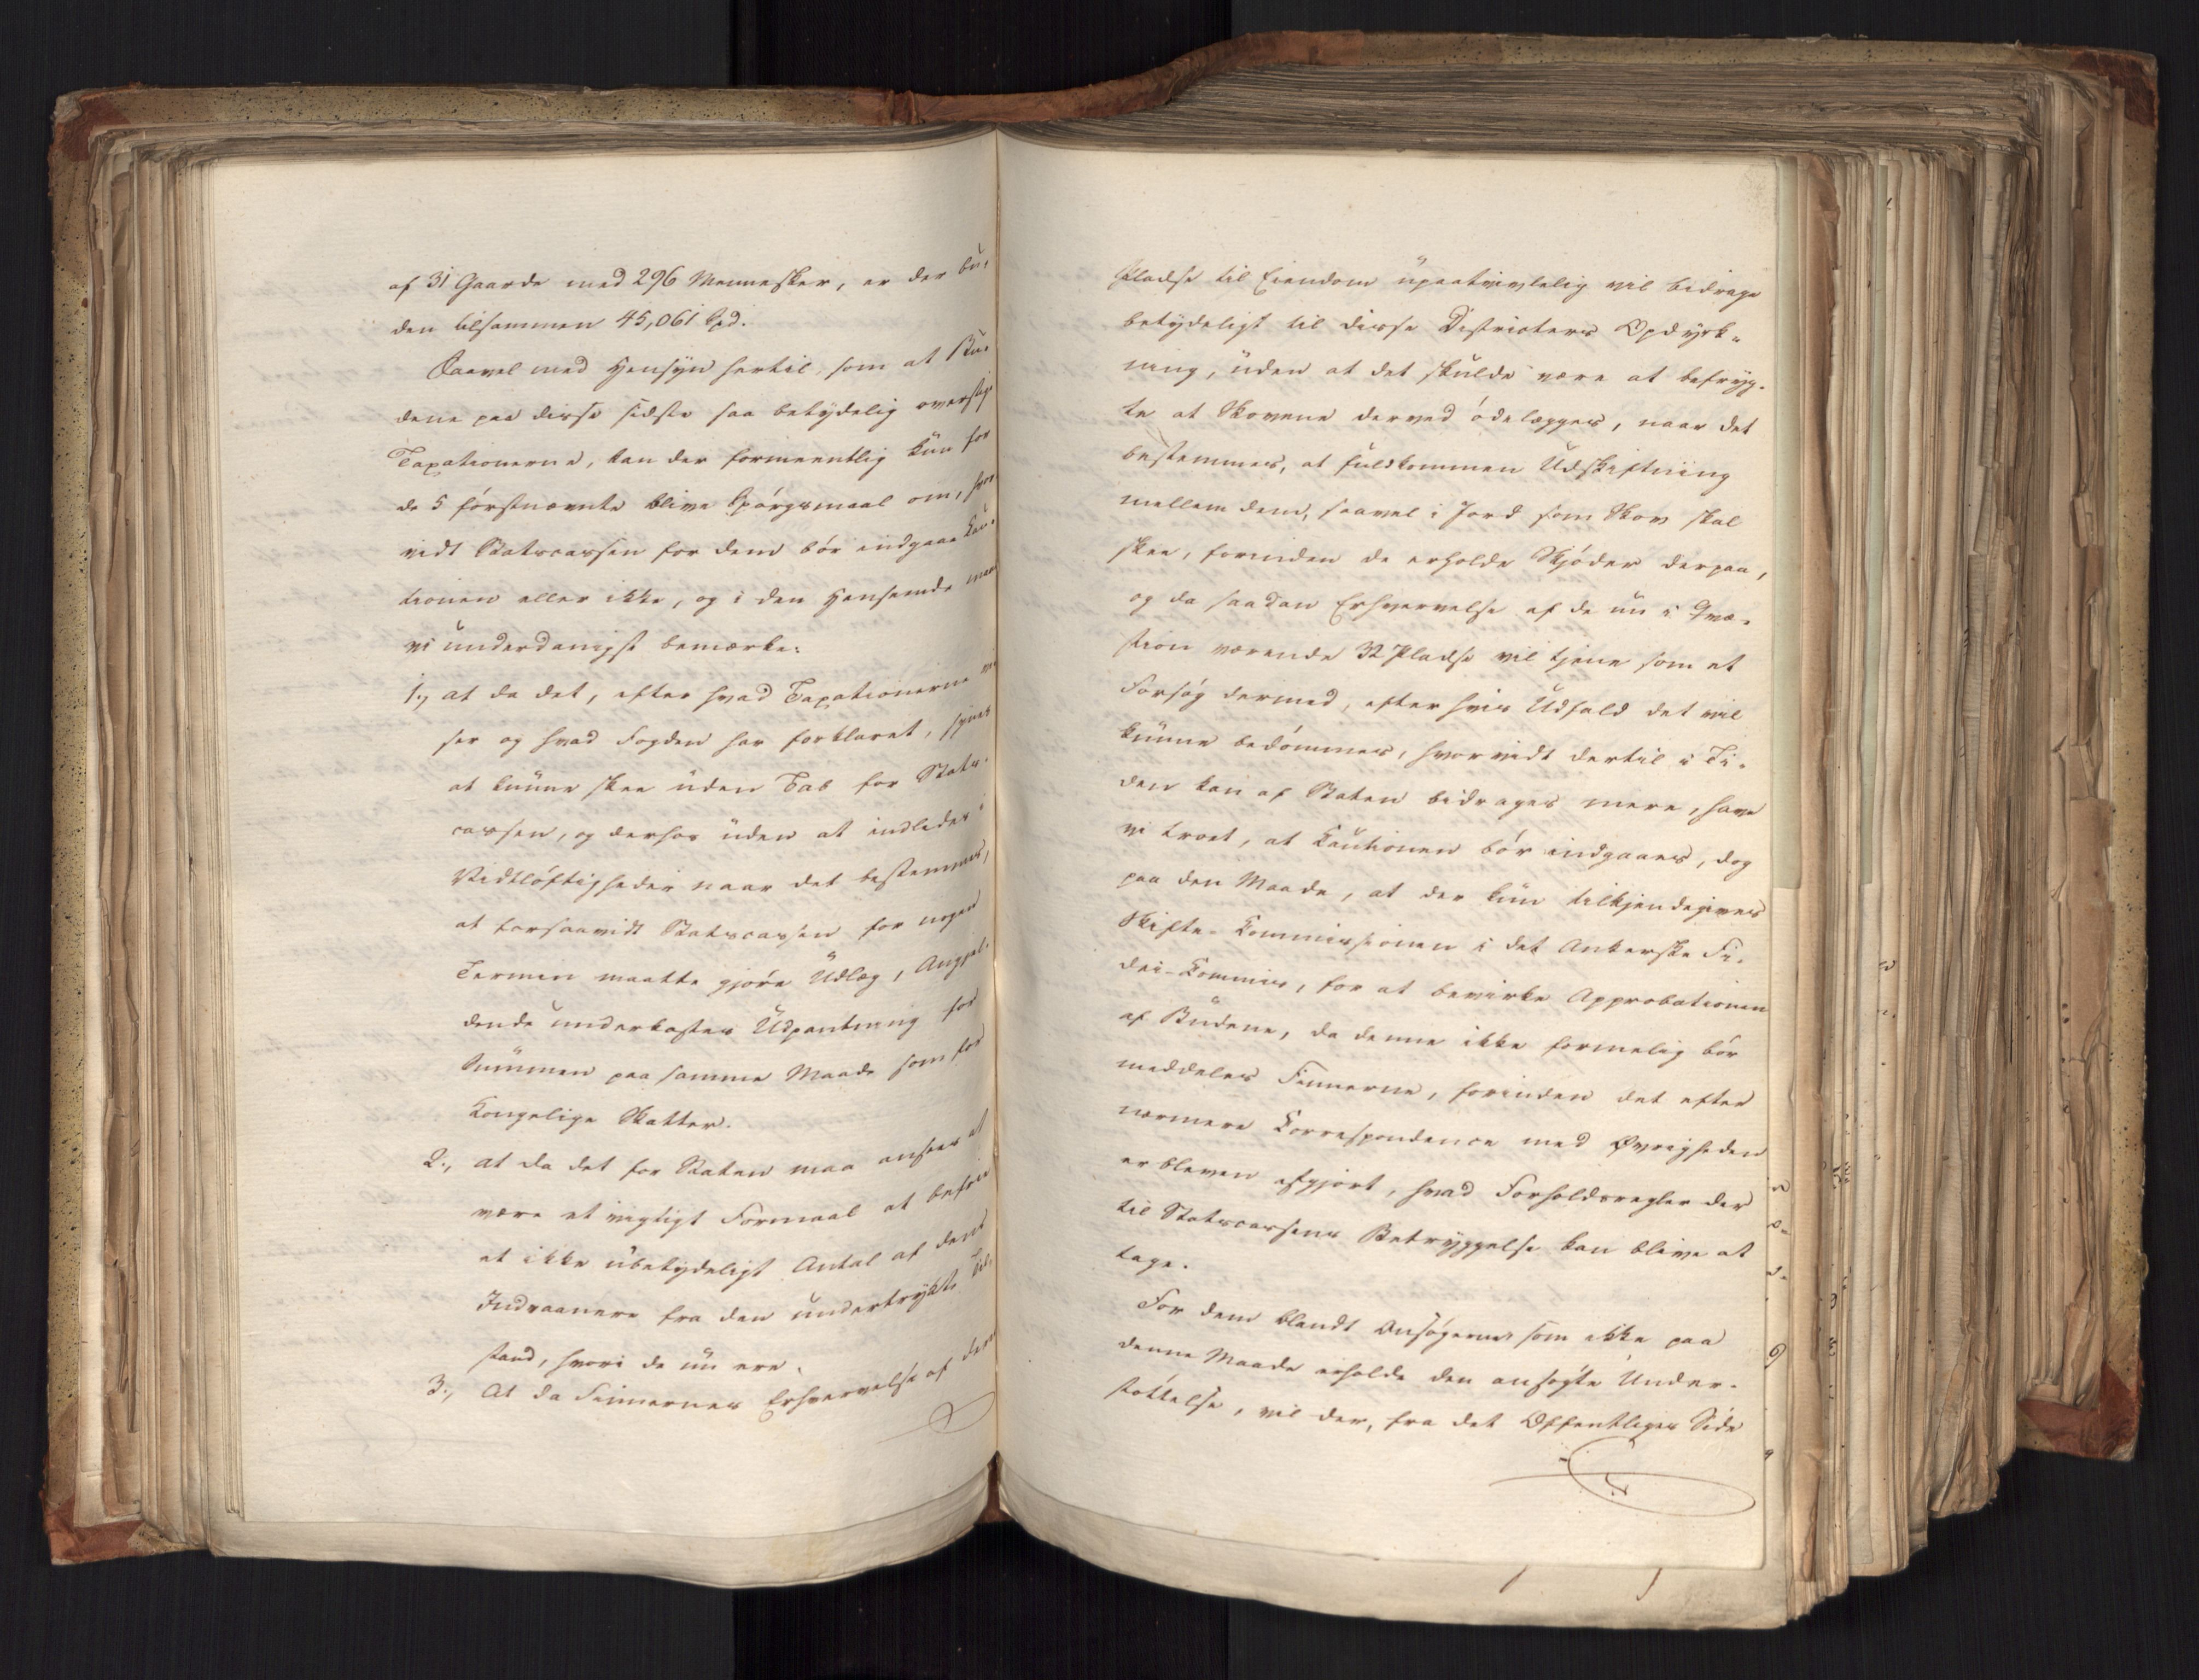 af 31 Gaarde med 296 Mennesker, er der bu-
den tilsammen 45,061 Spd.
Saavel med Hensyn hertil, som at Bu-
dene paa disse sidste saa betydelig overstige
Taxationerne, kan der formeentlig kun for
de 5 förstnævnte blive Spörgsmaal om, hvor
vidt Statscassen for dem bör indgaae Cau-
tionen eller ikke, og i den Henseende maae
vi underdanigst bemærke:
1., at da det, efter hvad Taxationerne vi-
ser og hvad Fogden har forklaret, synes
at kunne skee uden Tab for Stats-
cassen, og derhos uden at indledes i
Vidtlöftigheder naar det bestemmes,
at forsaavidt Statscassen for nogen
Termin maatte gjöre Udlæg, Angjæl-
dende underkastes Udpantning for
Summen paa samme Maade som for
Kongelige Skatter.
2., at da det for Staten maa ansees at
være et vigtigt Formaal at befrie
et ikke ubetydeligt Antal af dens
Indvaanere fra den undertrykte Til-
stand, hvori de nu ere.
3., At da Finnernes Erhvervelse af dere
Pladse til Eiendom upaatvivlelig vil bidrage
betydeligt til disse Districters Opdyrk-
ning, uden at det skulde være at befryg-
te at Skovene derved ödelægges, naar det
bestemmes, at fuldkommen Udskiftning
mellem dem, saavel i Jord som Skov skal
skee, forinden de erholde Skjöder derpaa,
og da saadan Erhvervelse af de nu i Qvæ-
stion værende 32 Pladse vil tjene som et
Forsög dermed, efter hvis Udfald det vil
kunne bedömmes, hvorvidt dertil i Ti-
den kan af Staten bidrages mere, have
vi troet, at Cautionen bör indgaaes, dog
paa den Maade, at der kun tilkjendegives
Skifte-Kommissionen i det Ankerske Fi-
dei-Kommis, for at bevirke Approbationen
af Budene, da denne ikke formelig bör
meddeles Finnerne, forinden det efter
nærmere Correspondence med Øvrigheden
er bleven afgjort, hvad Forholdsregler der
til Statscassens Betryggelse kan blive at
tage.
For dem blandt Ansögerne som ikke paa
denne Maade erholde den ansögte Under-
støttelse, vil der, fra det Offentliges Side